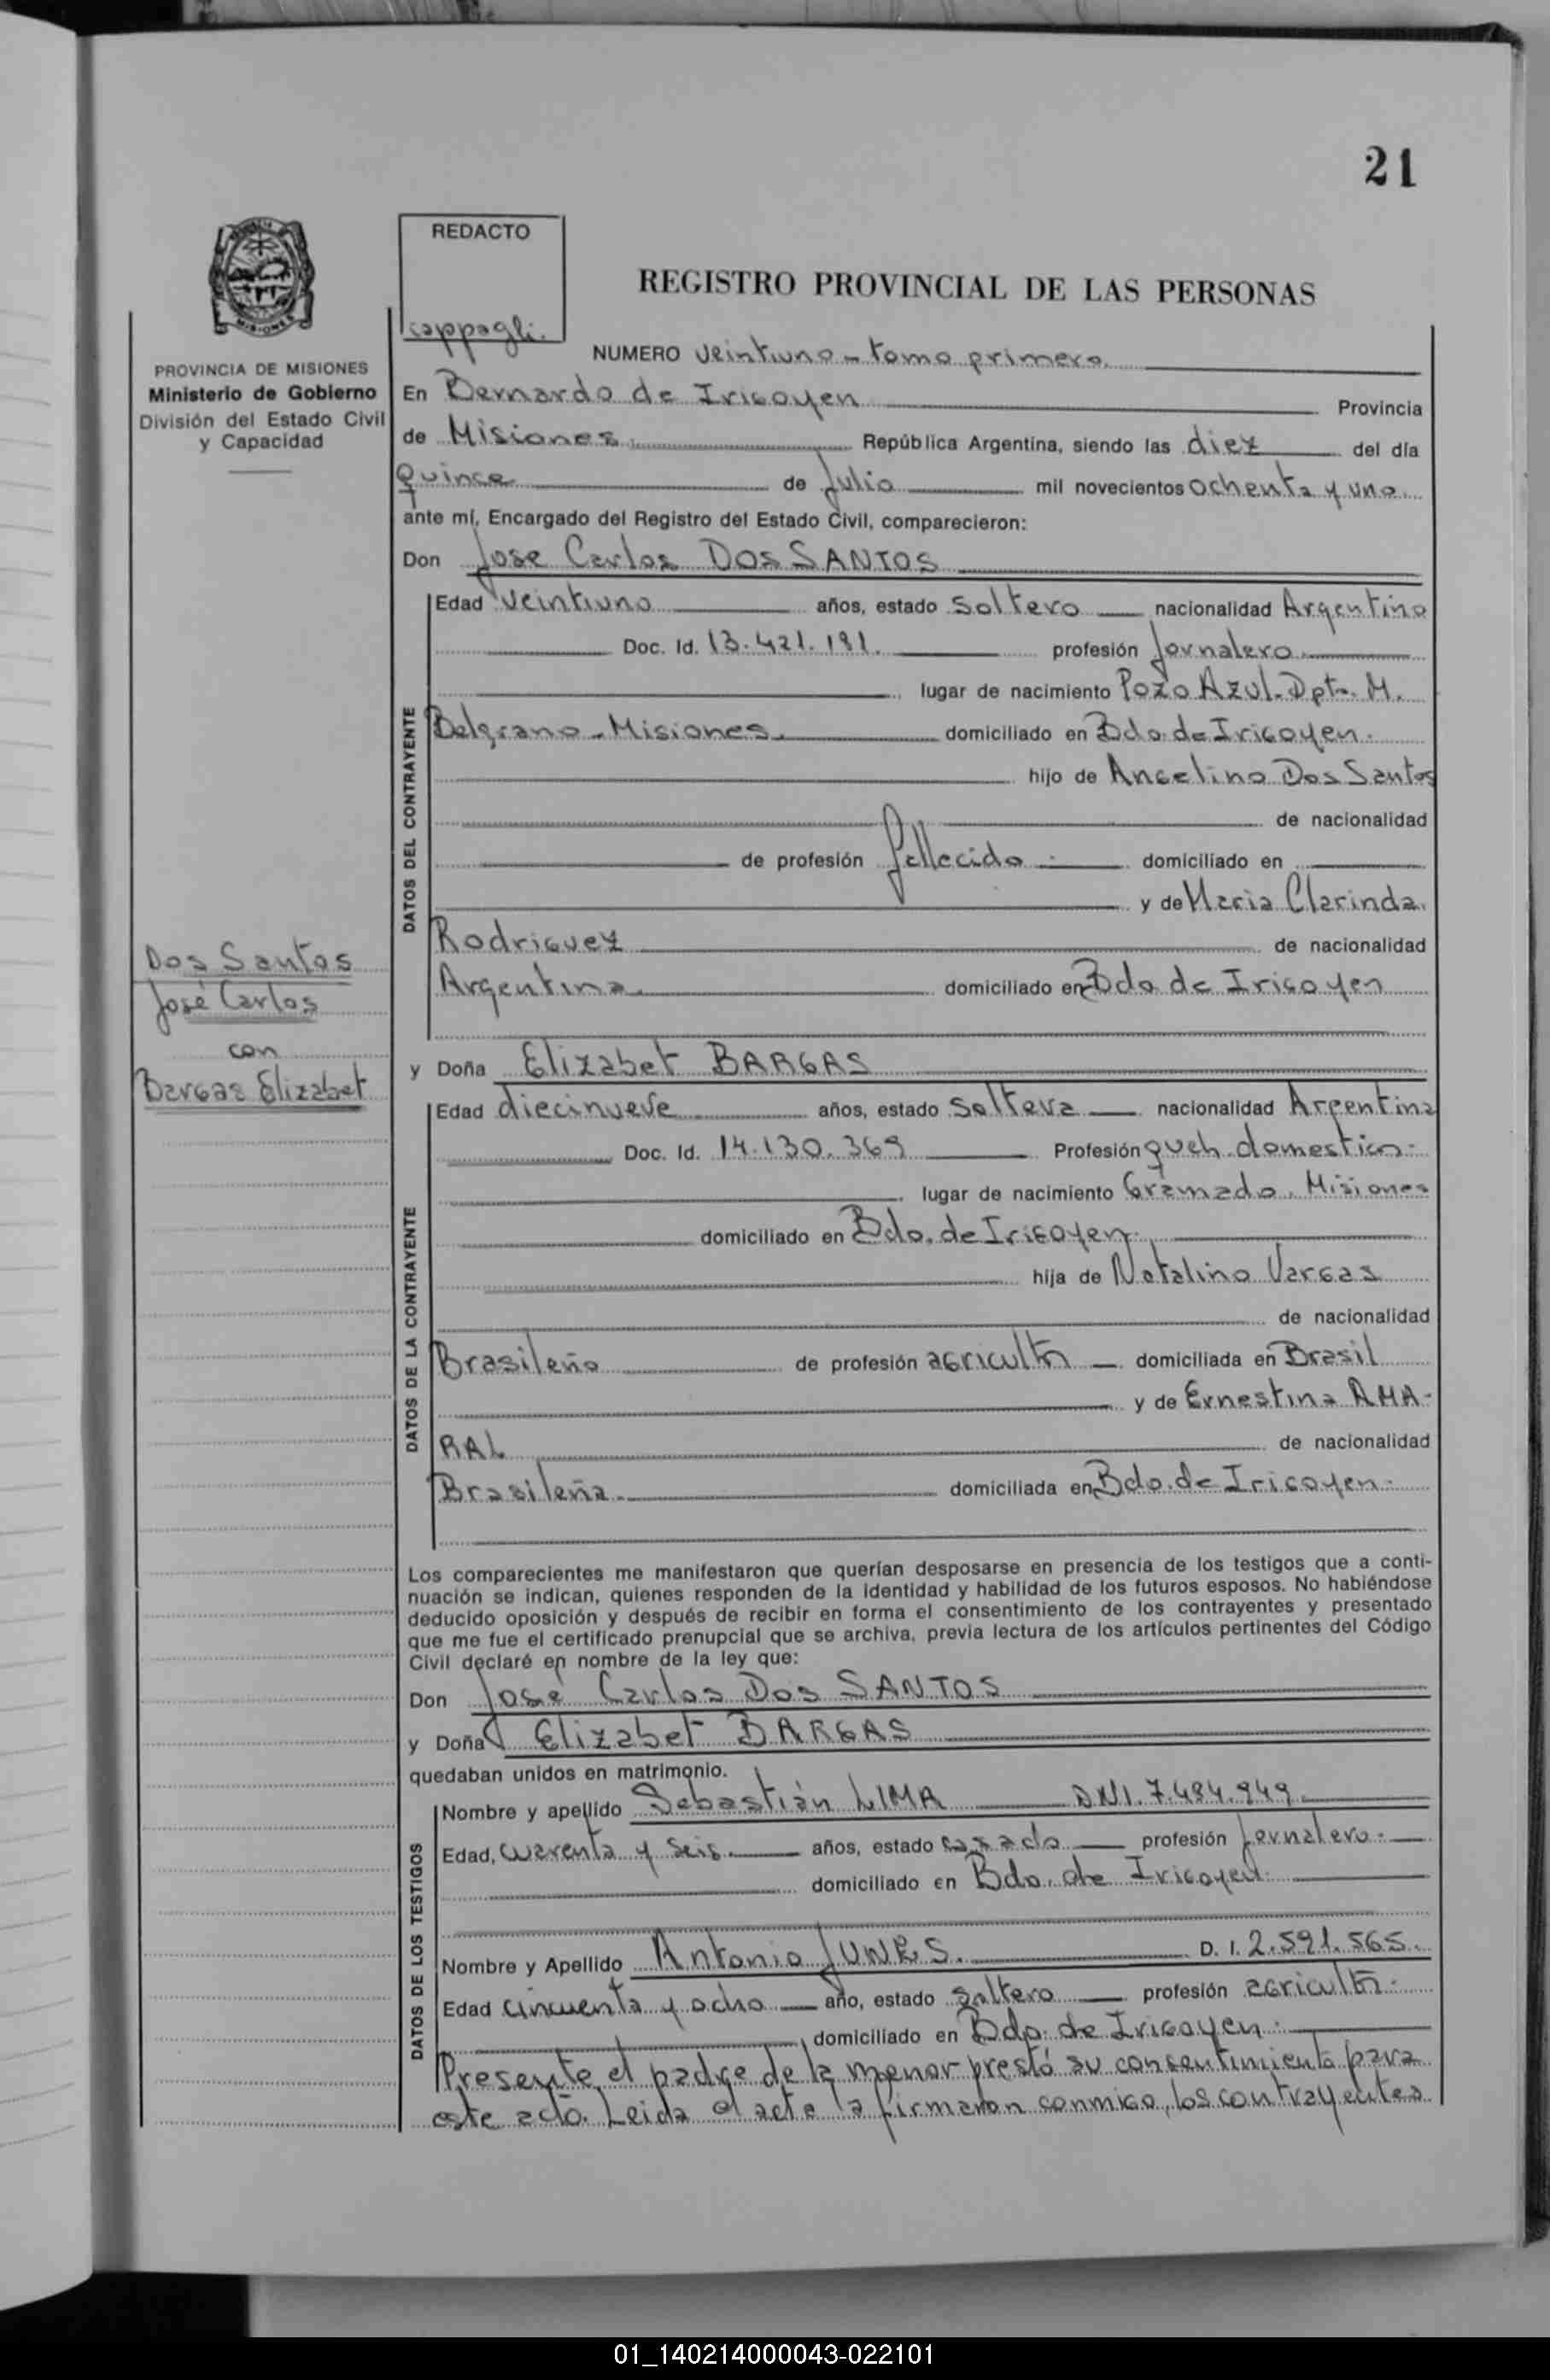 21
REDACTO
cappagli.
REGISTRO PROVINCIAL DE LAS PERSONAS
MISIONES
PROVINCIA DE MISIONES
Ministerio de Gobierno
División del Estado Civil
y Capacidad
NUMERO veintiuno - tomo primero.
En Bernardo de Irigoyen Provincia
de Misiones. República Argentina, siendo las diez del día
quince de Julio mil novecientos ochenta y uno.
ante mí, Encargado del Registro del Estado Civil, comparecieron:
Don Jose Carlos DOS SANTOS
DATOS DEL CONTRAYENTE
Edad veintiuno años, estado soltero nacionalidad Argentino
Doc. Id. 13.421.191. profesión Jornalero
lugar de nacimiento Pozo Azul. Dpto. M.
Belgrano - Misiones. domiciliado en Bdo. de Irigoyen.
hijo de Ancelino Dos Santos
de nacionalidad
de profesión fallecido. domiciliado en
y de Maria Clarinda.
Rodriguez de nacionalidad
Argentina. domiciliado en Bdo de Irigoyen
Dos Santos
José Carlos
con
Bargas Elizabet
y Doña Elizabet BARGAS
DATOS DE LA CONTRAYENTE
Edad diecinueve años, estado soltera nacionalidad Argentina
Doc. Id. 14.130.369 Profesión queh. domestico.
lugar de nacimiento Gramado. Misiones
domiciliado en Bdo. de Irigoyen.
hija de Natalino Vargas
de nacionalidad
Brasileño de profesión agricultor domiciliada en Brasil
y de Ernestina AMA-
RAL de nacionalidad
Brasileña. domiciliada en Bdo. de Irigoyen.
Los comparecientes me manifestaron que querían desposarse en presencia de los testigos que a conti-
nuación se indican, quienes responden de la identidad y habilidad de los futuros esposos. No habiéndose
deducido oposición y después de recibir en forma el consentimiento de los contrayentes y presentado
que me fue el certificado prenupcial que se archiva, previa lectura de los artículos pertinentes del Código
Civil declaré en nombre de la ley que:
Don José Carlos Dos SANTOS
y Doña Elizabet BARGAS
quedaban unidos en matrimonio.
DATOS DE LOS TESTIGOS
Nombre y apellido Sebastián LIMA DNI. 7.484.949.
Edad, cuarenta y seis. años, estado casado profesión Jornalero.
domiciliado en Bdo. de Irigoyen.
Nombre y Apellido Antonio JUNES. D. I. 2.591.565.
Edad cincuenta y ocho año, estado soltero profesión agricultor.
domiciliado en Bdo. de Irigoyen.
Presente el padre de la menor prestó su consentimiento para
este acto. Leida el acta la firmaron conmigo, los contrayentes
01_140214000043-022101